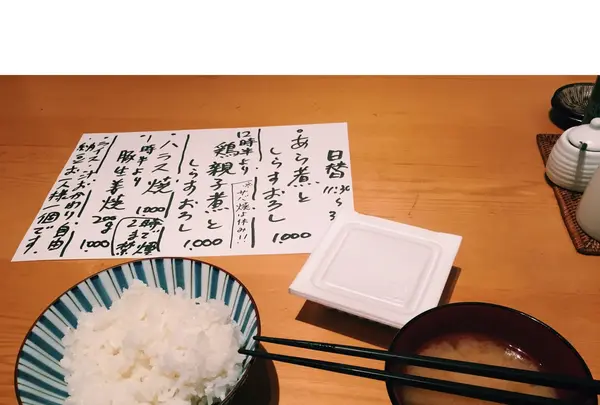 日替
11:30
〜
3
・あら煮と
しらすおろし
1,000
※サバ焼は休み!!
12時半より
鶏親子煮と
しらすおろし
1,000
ハラス焼
1,000
1時半より
豚生姜焼
200g
1,000
2時まで禁煙
ライス・汁おかわり自由
納豆お一人様一個です